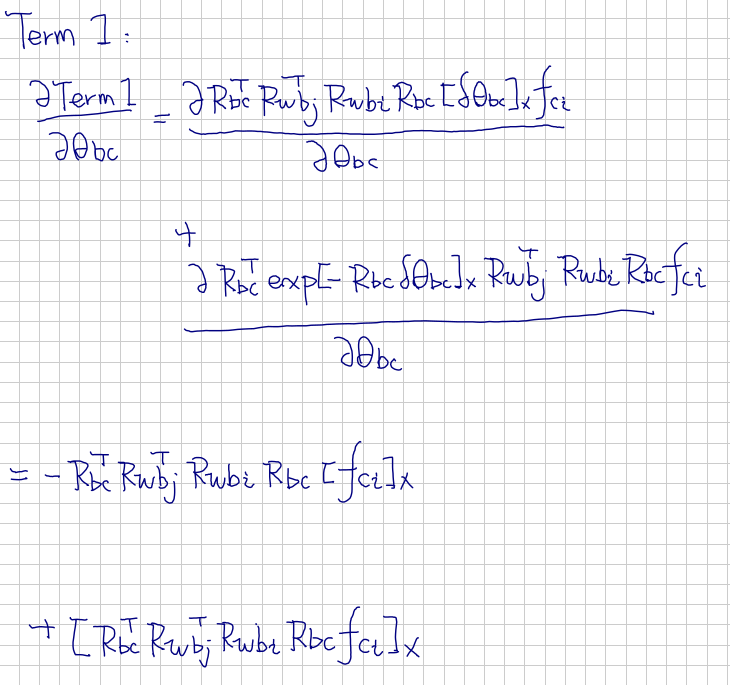 Term 1 :
∂Term1 / ∂θbc = ∂ Rbc^T Rwbj^T Rwbi Rbc [δθbc]x fci / ∂θbc
+ ∂ Rbc^T exp[- Rbc δθbc]x Rwbj^T Rwbi Rbc fci / ∂θbc
= - Rbc^T Rwbj^T Rwbi Rbc [fci]x
+ [Rbc^T Rwbj^T Rwbi Rbc fci]x